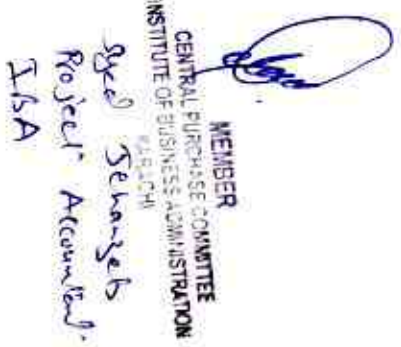 MEMBER
CENTRAL PURCHASE COMMITTEE
INSTITUTE OF BUSINESS ADMINISTRATION
KARACHI
Syed Jehanzeb
Project Accountant
IBA